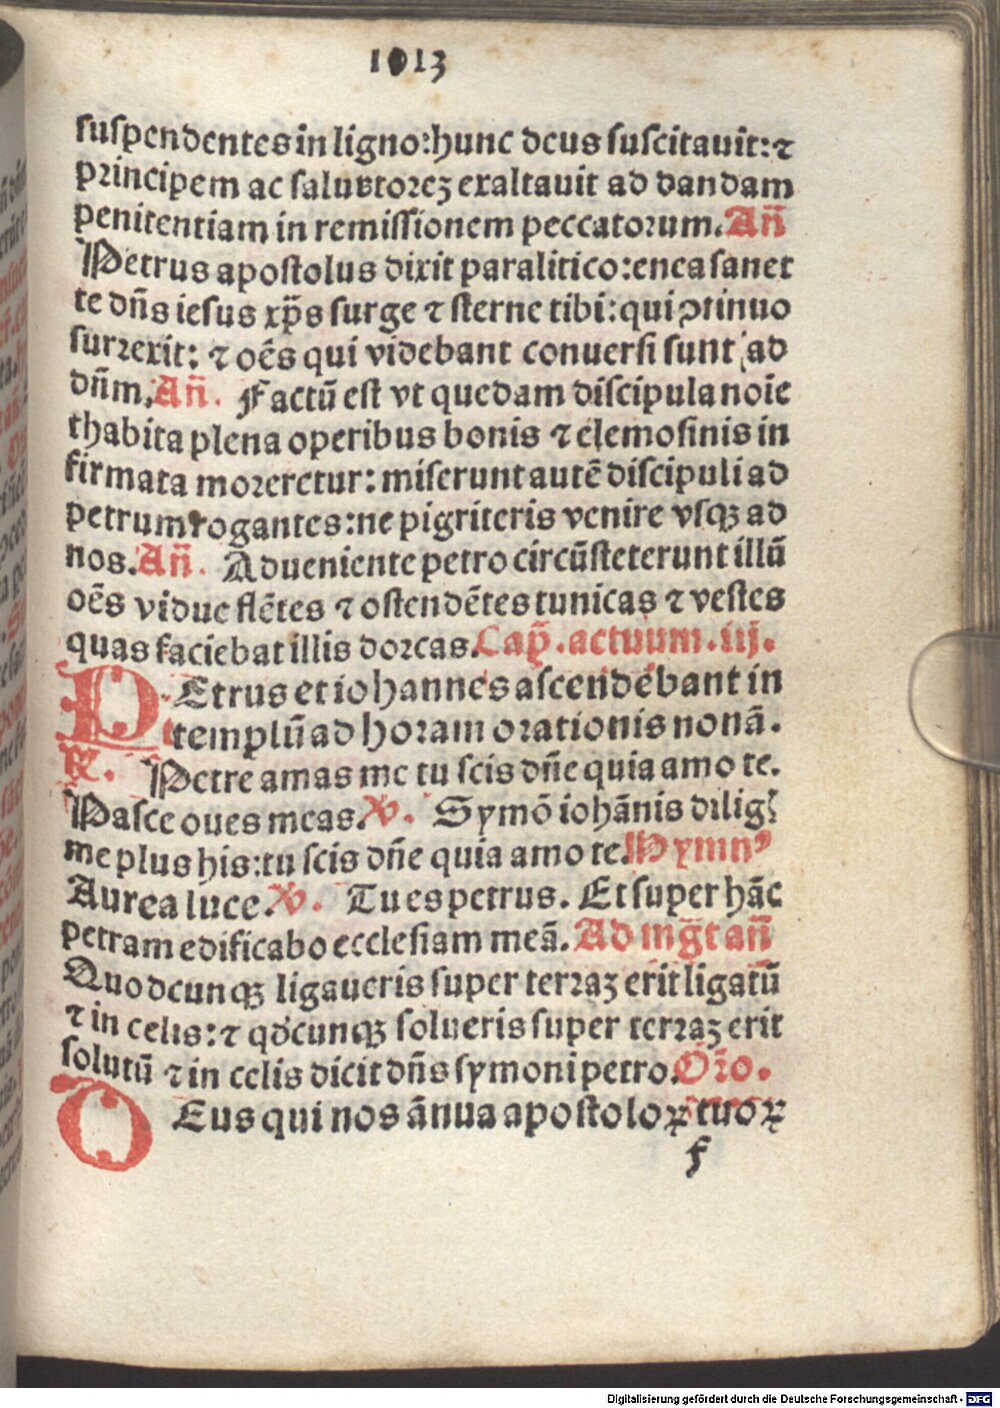 1013
suspendentes in ligno: hunc deus suscitauit: ⁊
principem ac saluatorēꝫ exaltauit ad dandam
penitentiam in remissionem peccatorum. Añ
Petrus apostolus dixit paralitico: enea sanet
te dñs iesus xp̄s surge ⁊ sterne tibi: qui ꝯtinuo
surrexit: ⁊ oēs qui videbant conuersi sunt ad
dñm. Añ. Factū est vt quedam discipula noīe
thabita plena operibus bonis ⁊ elemosinis in
firmata moreretur: miserunt autē discipuli ad
petrum rogantes: ne pigriteris venire vsqꝫ ad
nos. Añ. Adueniente petro circūsteterunt illū
oēs vidue flētes ⁊ ostendētes tunicas ⁊ vestes
quas faciebat illis dorcas. Cap̄. actuum. iij.
PEtrus et iohannes ascendebant in
templū ad horam orationis nonā.
℟. Petre amas me tu scis dñe quia amo te.
Pasce oues meas. ℣. Symō iohānis dilig͛
me plus his: tu scis dñe quia amo te. Hymnꝰ
Aurea luce. ℣. Tu es petrus. Et super hāc
petram edificabo ecclesiam meā. Ad mg̅t añ
Quodcunqꝫ ligaueris super terraꝫ erit ligatū
⁊ in celis: ⁊ qđcunqꝫ solueris super terraꝫ erit
solutū ⁊ in celis dicit dñs symoni petro. Oŕo.
DEus qui nos ānua apostoloꝝ tuoꝝ
f
Digitalisierung gefördert durch die Deutsche Forschungsgemeinschaft - DFG